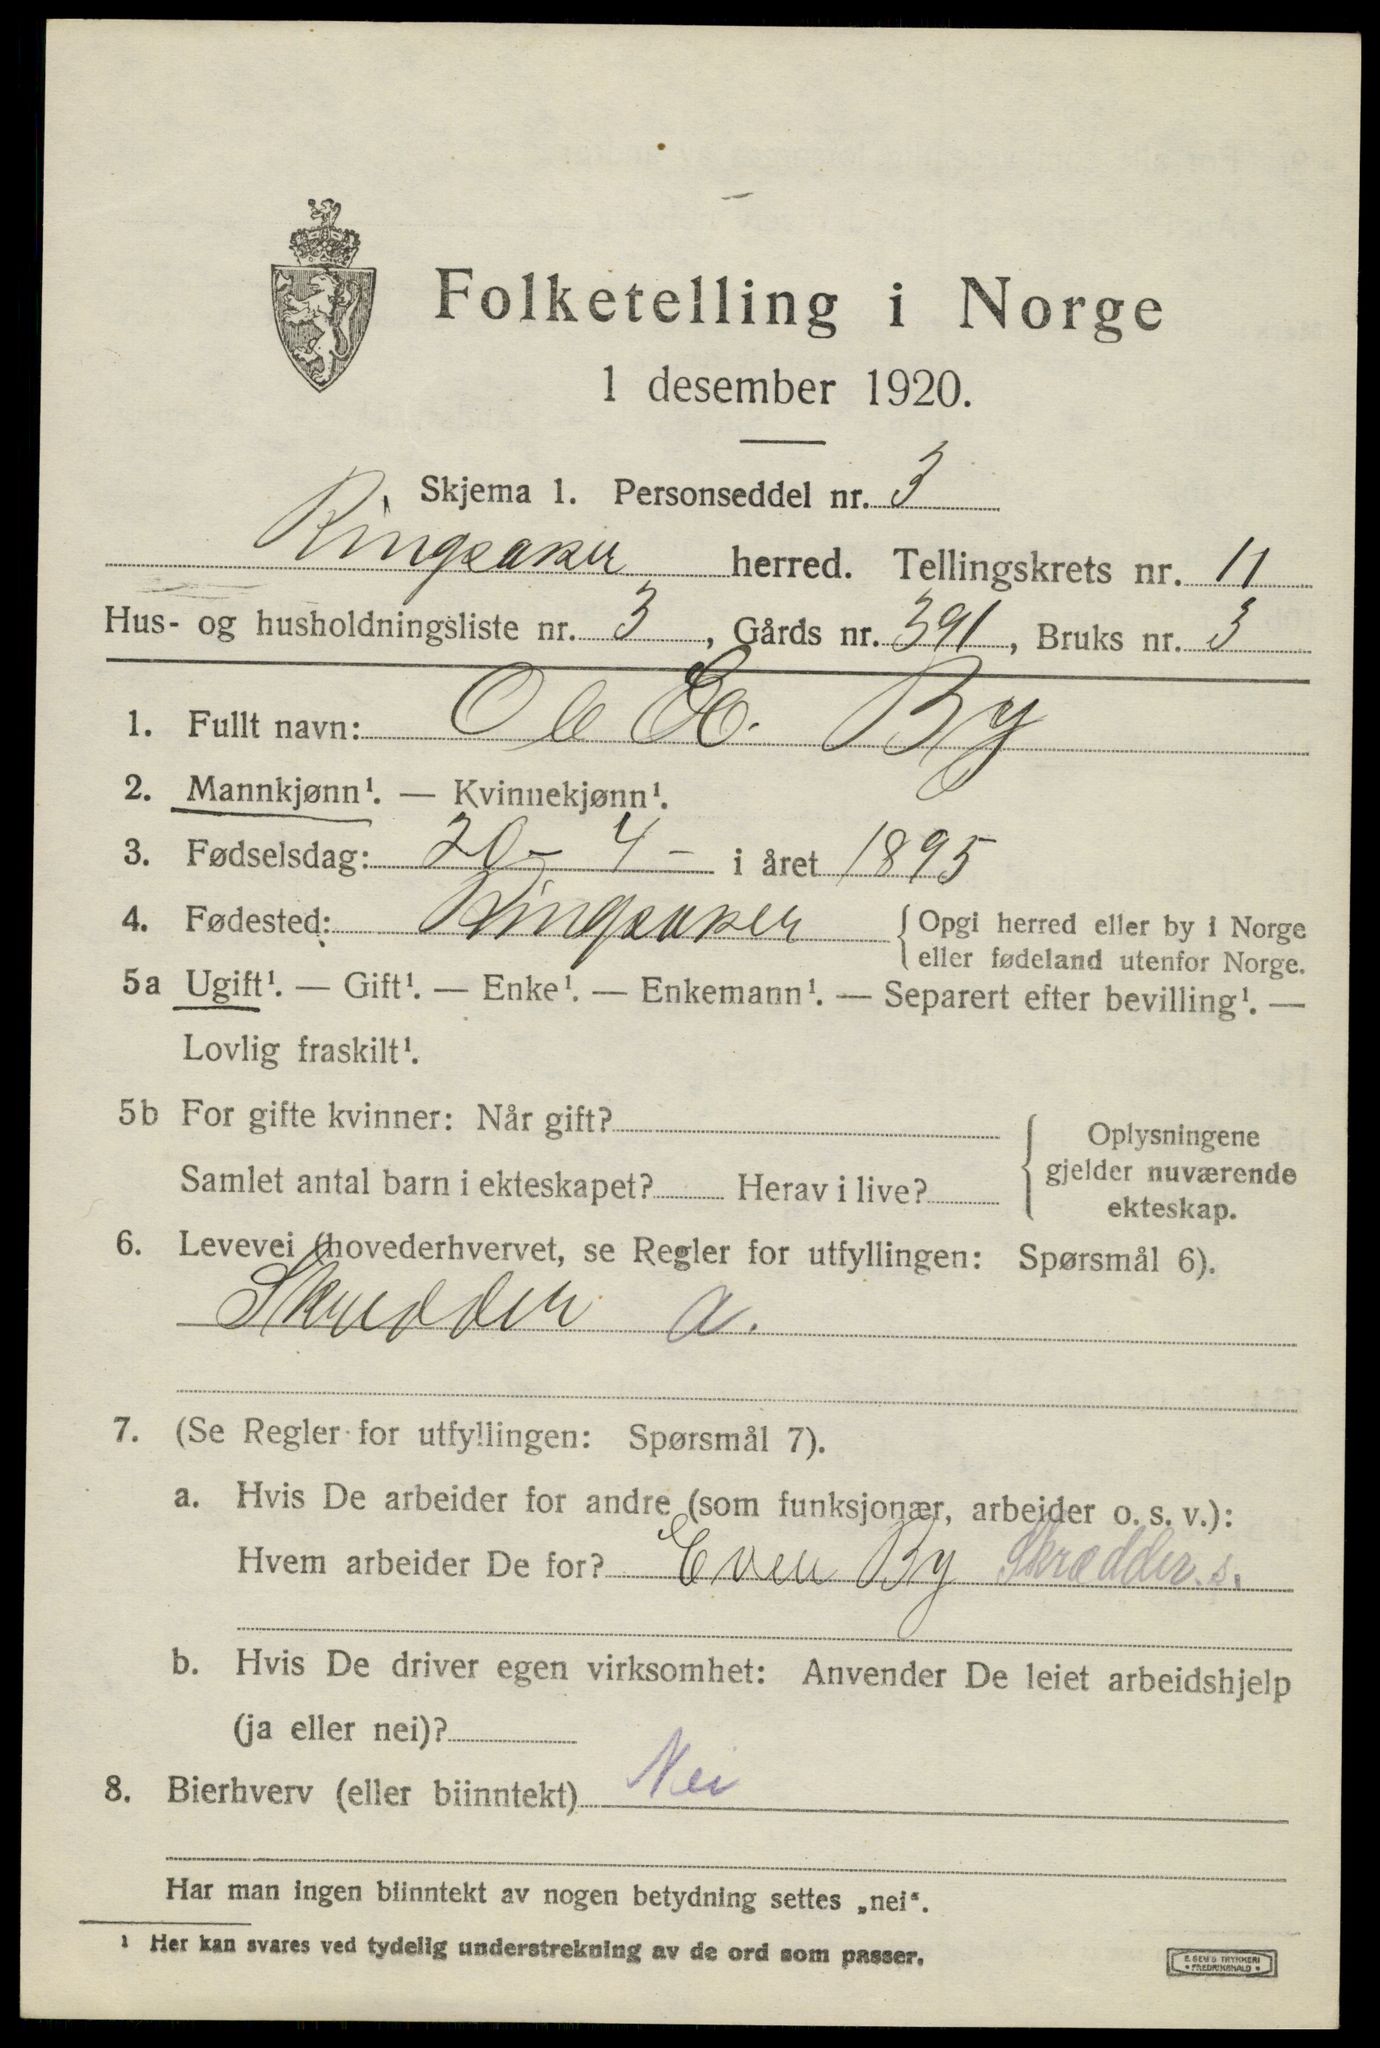 Folketelling i Norge
1 desember 1920.
Skjema 1. Personseddel nr. 3
Ringsaker herred. Tellingskrets nr. 11
Hus- og husholdningsliste nr. 3, Gårds nr. 391, Bruks nr. 3
1. Fullt navn: Ole E. By
2. Mannkjønn¹. — Kvinnekjønn¹.
3. Fødselsdag: 20 - 4 - i året 1895
4. Fødested: Ringsaker { Opgi herred eller by i Norge
eller fødeland utenfor Norge.
5a Ugift¹. — Gift¹. — Enke¹. — Enkemann¹. — Separert efter bevilling¹. —
Lovlig fraskilt¹.
5b For gifte kvinner: Når gift?
Samlet antal barn i ekteskapet? Herav i live?
{ Oplysningene
gjelder nuværende
ekteskap.
6. Levevei (hovederhvervet, se Regler for utfyllingen: Spørsmål 6).
Skredder a.
7. (Se Regler for utfyllingen: Spørsmål 7).
a. Hvis De arbeider for andre (som funksjonær, arbeider o. s. v.):
Hvem arbeider De for? Even By Skrædder. s.
b. Hvis De driver egen virksomhet: Anvender De leiet arbeidshjelp
(ja eller nei)?
8. Bierhverv (eller biinntekt) Nei
Har man ingen biinntekt av nogen betydning settes „nei“.
¹ Her kan svares ved tydelig understrekning av de ord som passer.
E. SEM'S TRYKKERI
• FREDRIKSHALD •